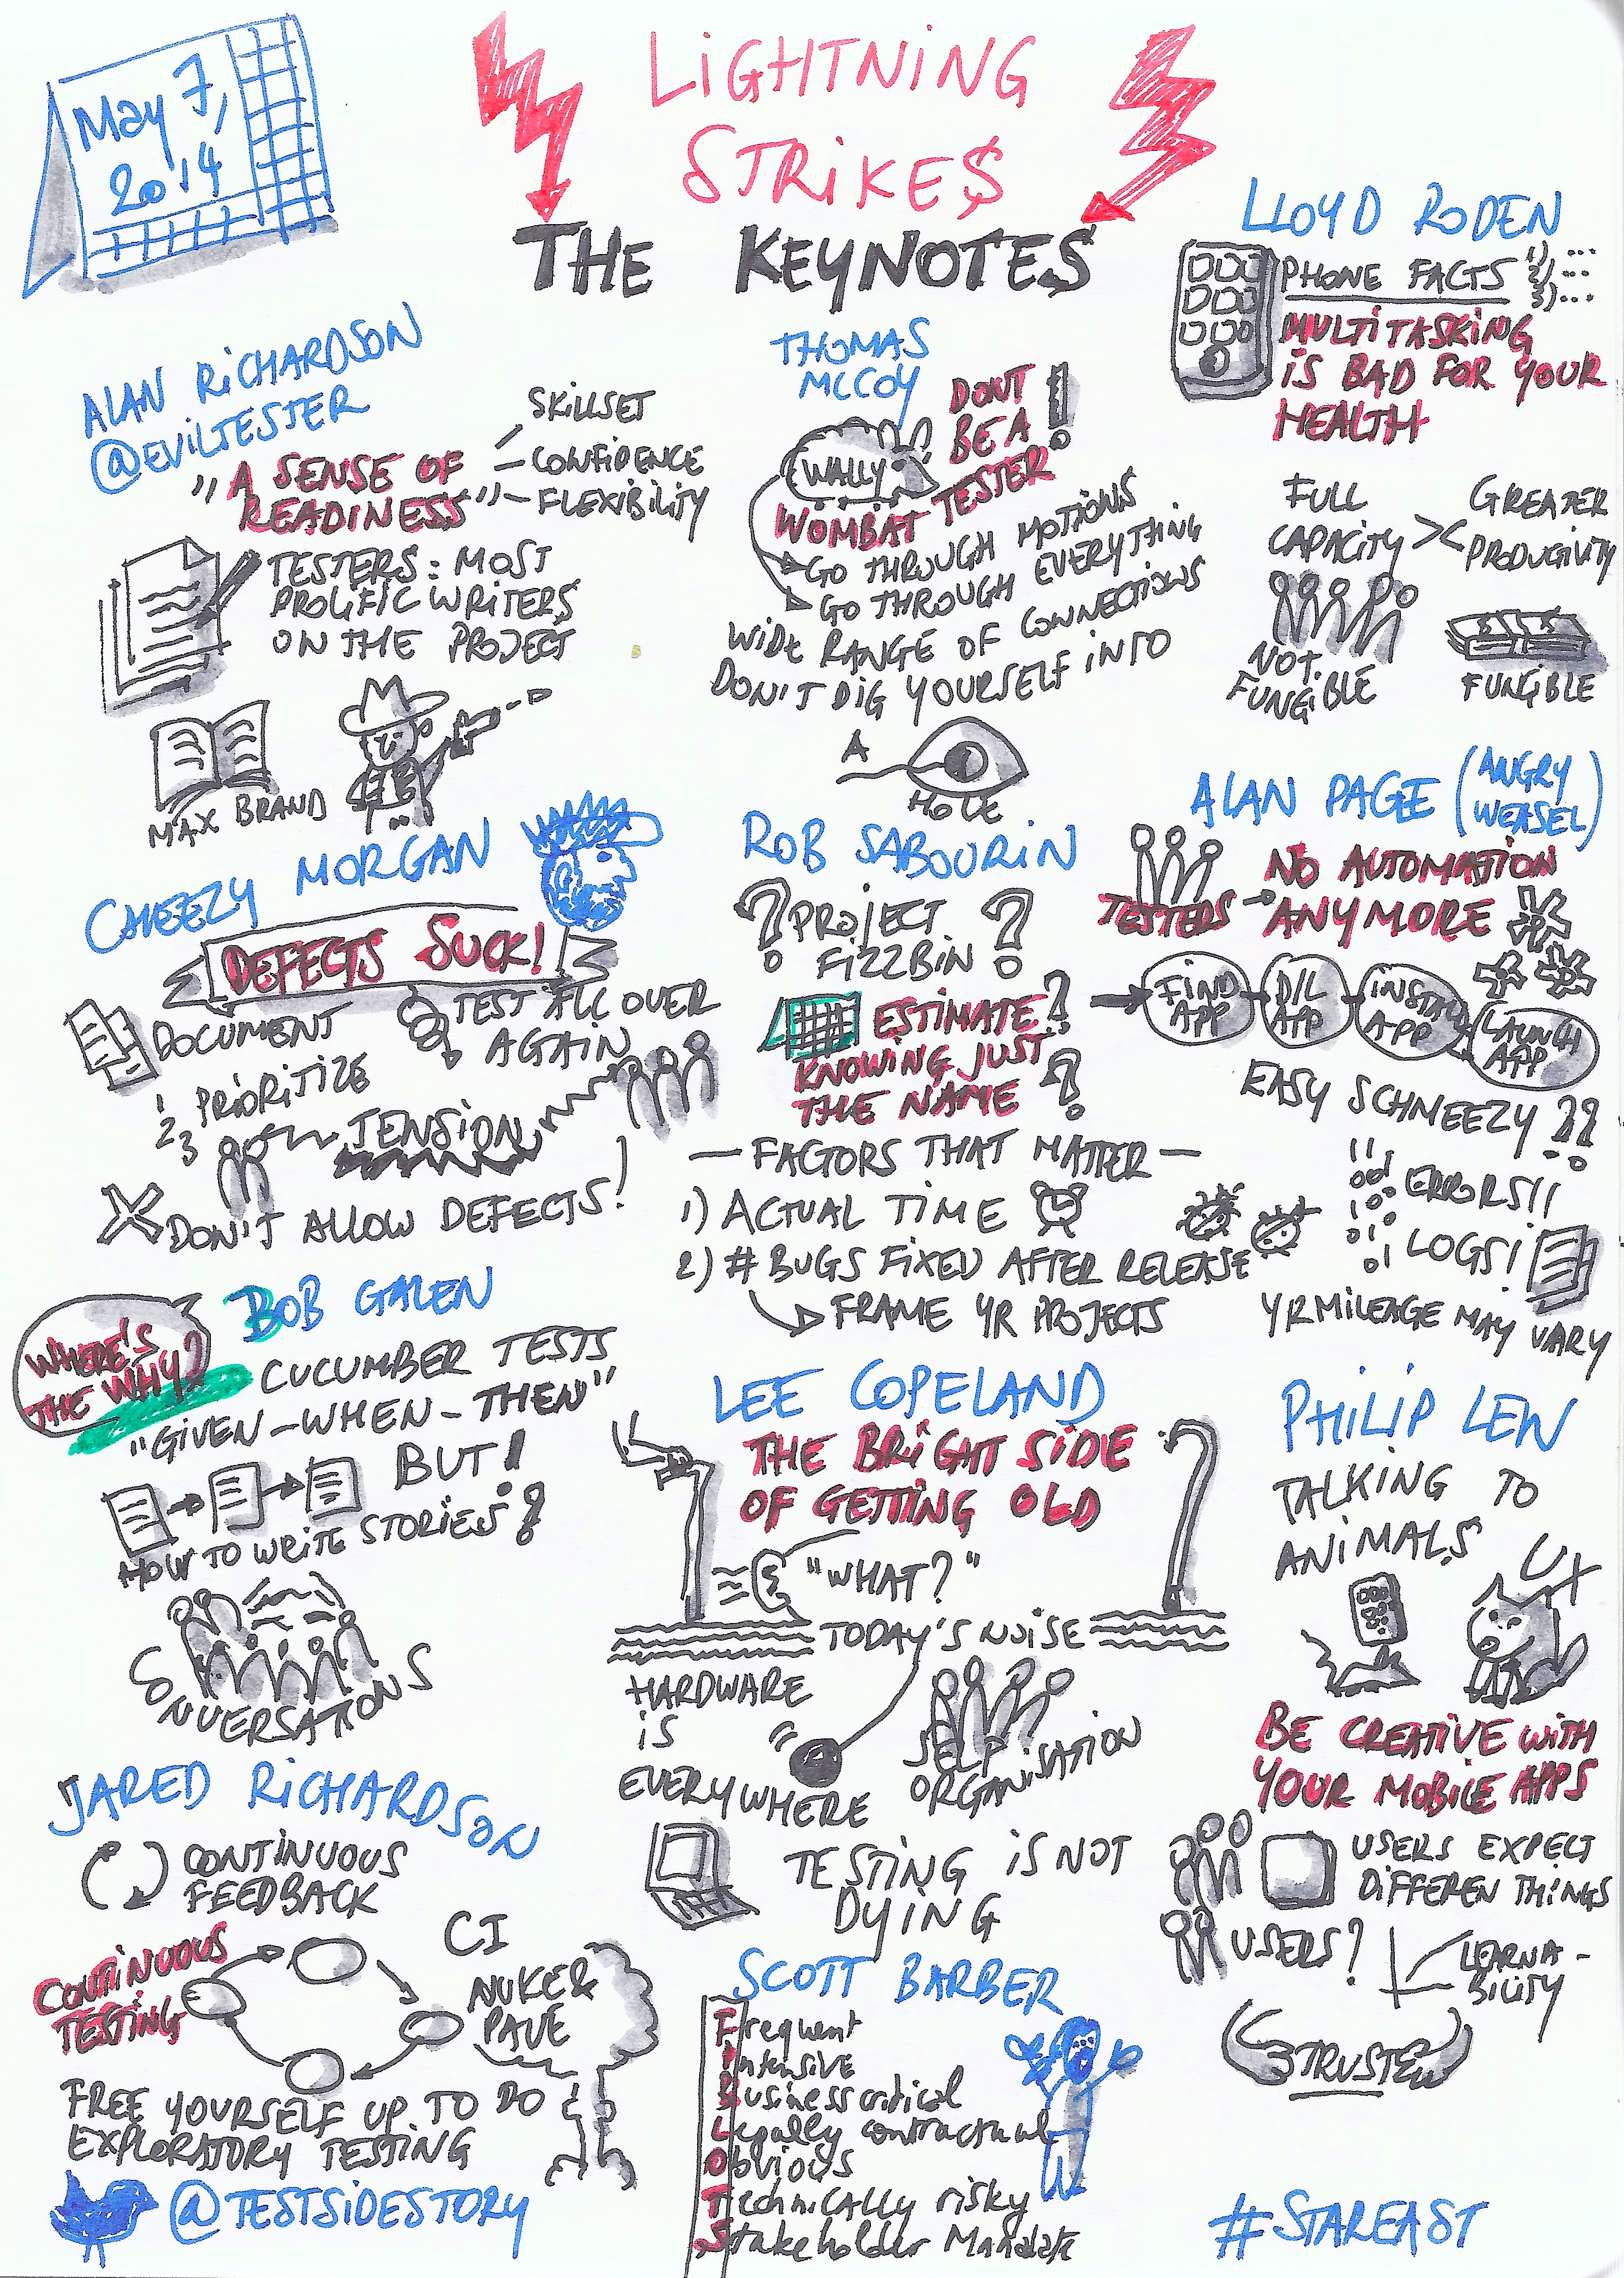 May 7,
2014
LiGHTNiNG
STRiKES
THE KEYNOTES
ALAN RiCHARDSON
@EViLTESTER
"A SENSE OF
READINESS"
SKillSET
CONFIDENCE
FLEXIBILITY
TESTERS: MOST
PROLIFIC WRITERS
ON THE PROJECT
MAX BRAND
CHEEZY MORGAN
DEFECTS SUCK!
DOCUMENT
TEST ALL OVER
AGAIN
1 PRIORITIZE
2
3
TENSION
DON'T ALLOW DEFECTS!
BOB GALEN
WHERE'S
THE WHY?
CUCUMBER TESTS
"GIVEN-WHEN-THEN"
BUT!
HOW TO WRITE STORIES?
CONVERSATIONS
JARED RiCHARDSON
CONTINUOUS
FEEDBACK
CONTINUOUS
TESTING
CI
NUKE &
PAVE
FREE YOURSELF UP TO DO
EXPLORATORY TESTING
@TESTSIDESTORY
THOMAS
MCCOY
WALLY
DONT
BE A
WOMBAT TESTER!
GO THROUGH MOTIONS
GO THROUGH EVERYTHING
WIDE RANGE OF CONNECTIONS
DON'T DIG YOURSELF INTO
A
HOLE
ROB SABOURiN
? PROJECT ?
FIZZBIN
ESTIMATE?
KNOWING JUST
THE NAME ?
- FACTORS THAT MATTER -
1) ACTUAL TIME
2) # BUGS FIXED AFTER RELEASE
FRAME YR PROJECTS
LEE COPELAND
THE BRIGHT SIDE
OF GETTING OLD
"WHAT?"
TODAY'S NOISE
HARDWARE
iS
EVERYWHERE
SELF
ORGANISATION
TESTING iS NOT
DYING
SCOTT BARBER
Frequent
Intensive
Business critical
Legally contractual
Obvious
Technically risky
Stakeholder Mandate
LLOYD RODEN
PHONE FACTS
1) ...
2) ...
3) ...
MULTITASKING
IS BAD FOR YOUR
HEALTH
FULL
CAPACITY
><
GREATER
PRODUCTIVITY
NOT
FUNGIBLE
FUNGIBLE
ALAN PAGE (ANGRY
WEASEL)
TESTERS
NO AUTOMATION
ANYMORE
FIND
APP
D/L
APP
INSTALL
APP
LAUNCH
APP
EASY SCHNEEZY ??
ERRORS!!
LOGS!
YR MILEAGE MAY VARY
PHiLiP LEW
TALKING TO
ANIMALS
UX
BE CREATIVE WITH
YOUR MOBILE APPS
USERS EXPECT
DIFFEREN THINGS
USERS?
LEARNA-
BILITY
TRUST
#STAREAST